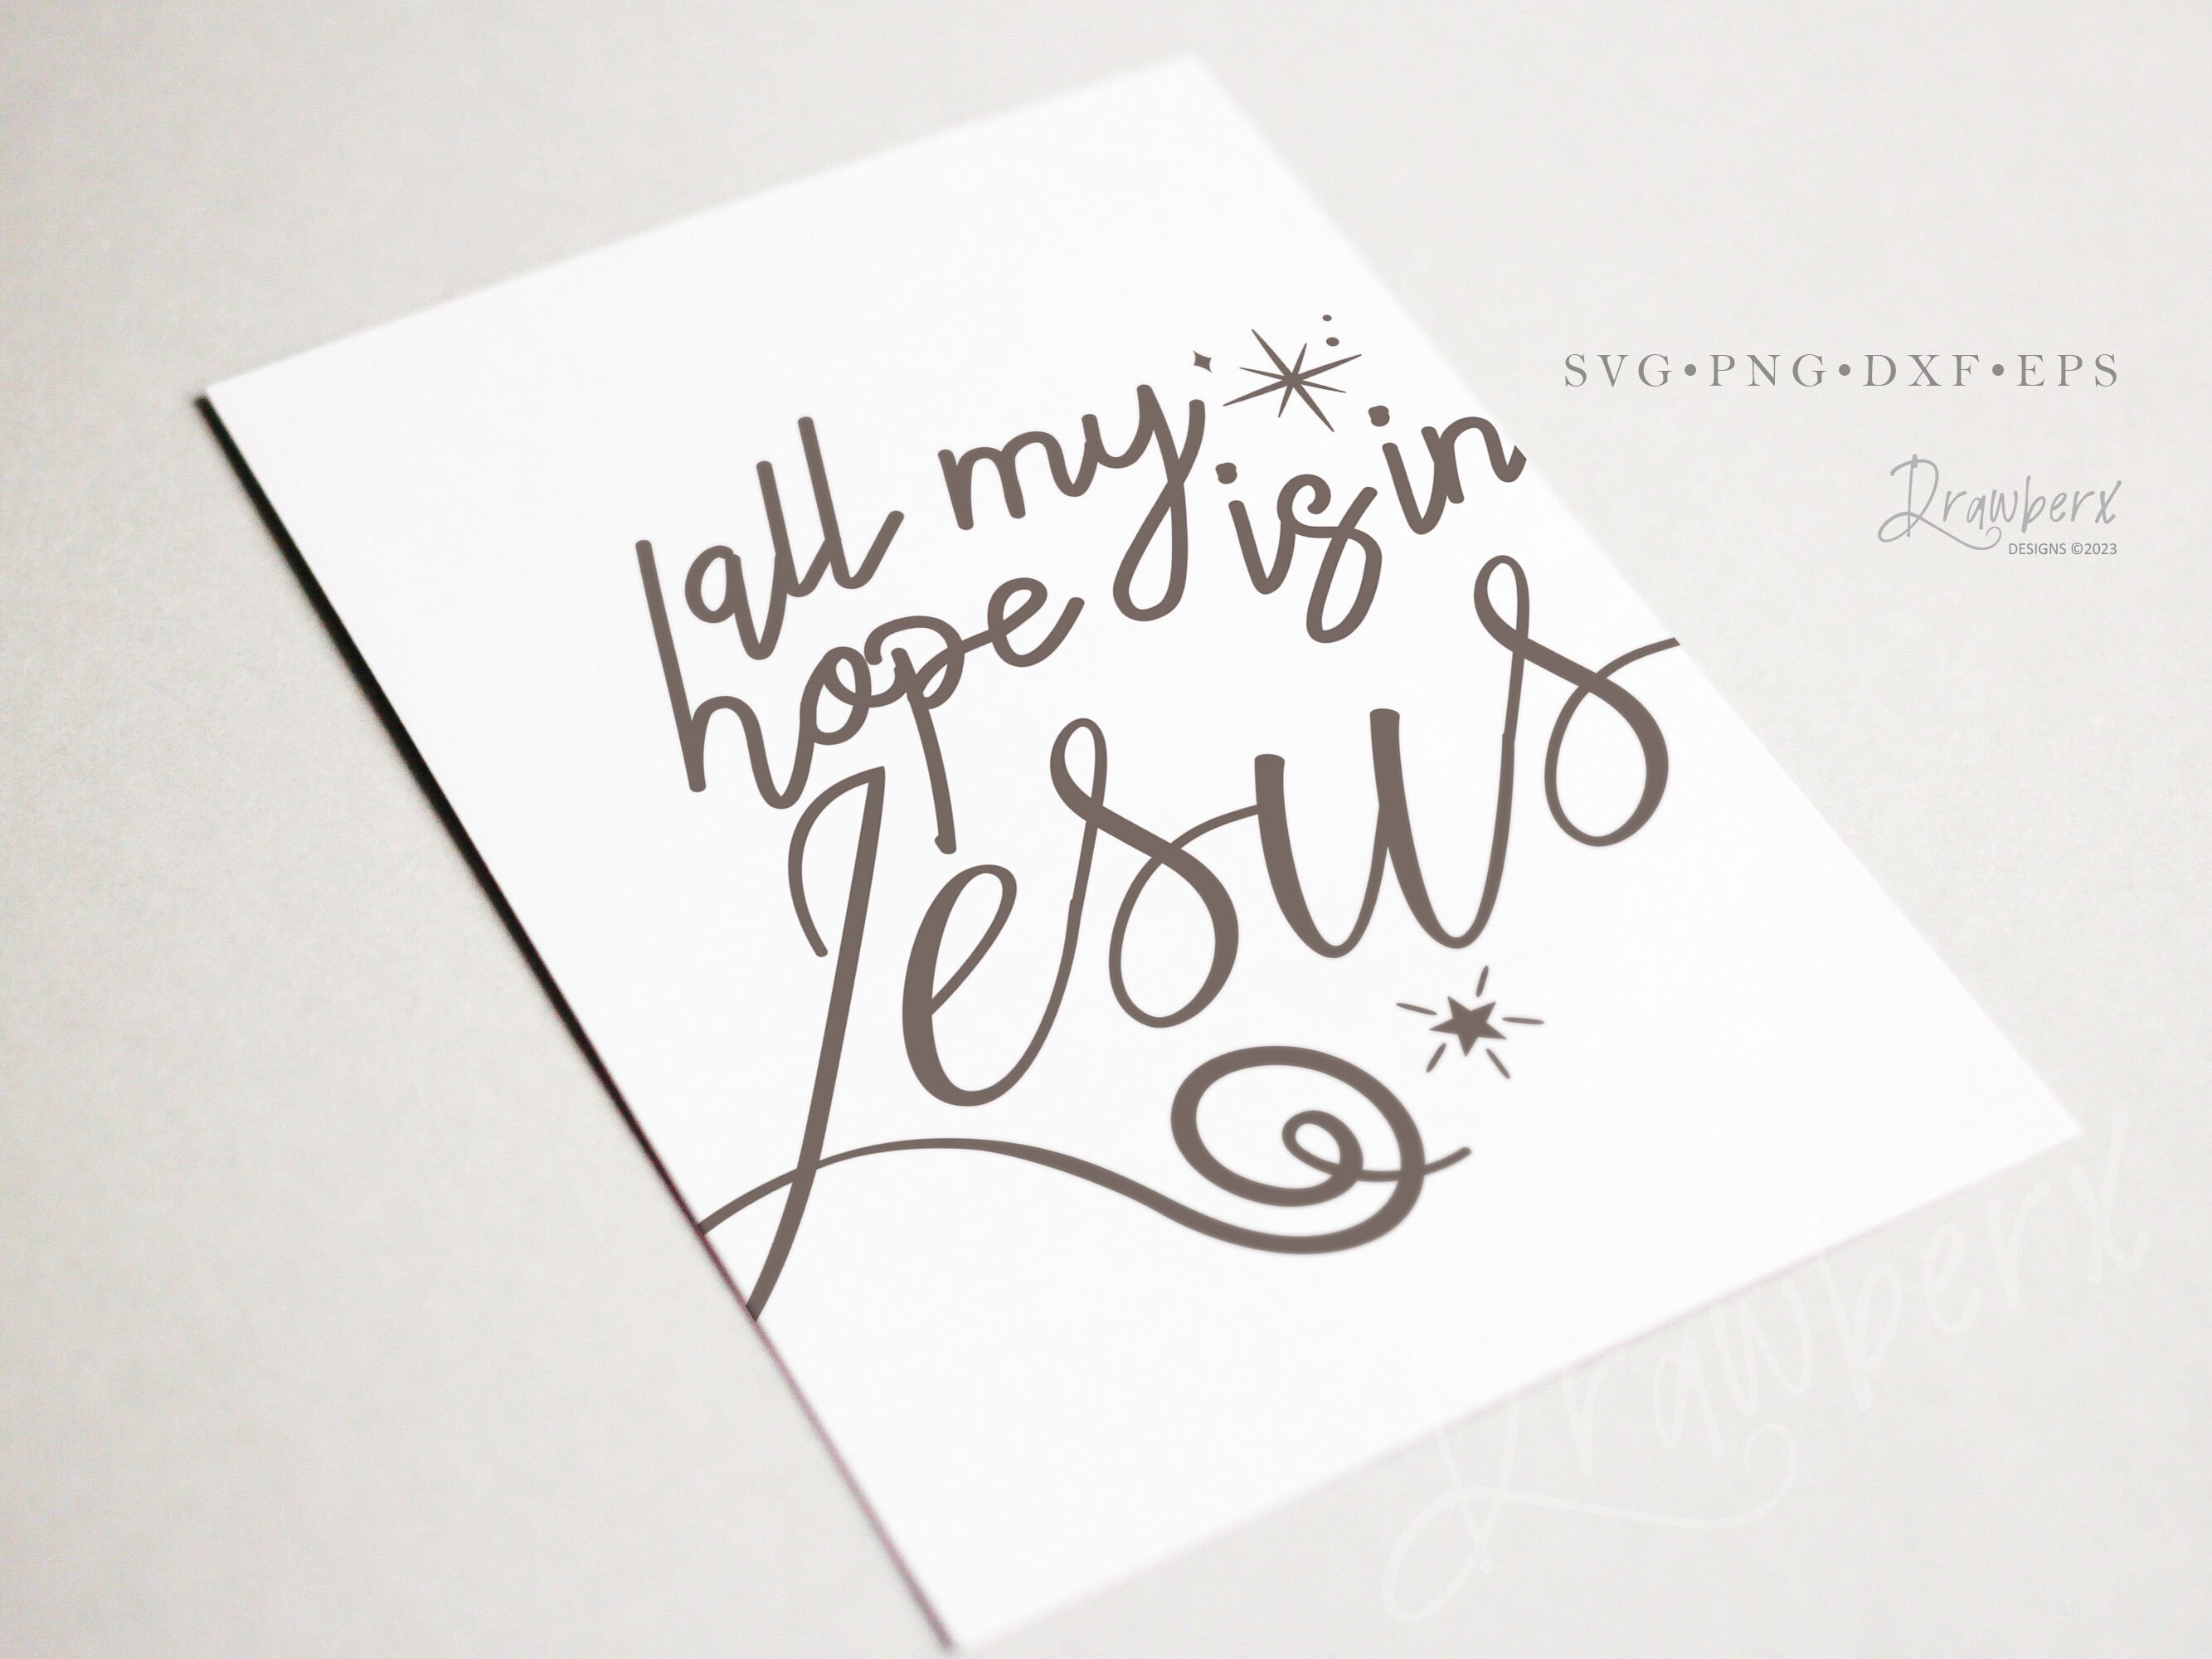 all my
hope is in
Jesus
SVG•PNG•DXF•EPS
Drawberx
DESIGNS ©2023
Drawberx